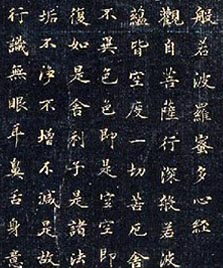 般若波羅蜜多心經
觀自菩薩行深般若波
蘊皆空度一切苦厄舍
不異色色即是空空即
復如是舍利子是諸法
垢不淨不增不減是故
行識無眼耳鼻舌身意